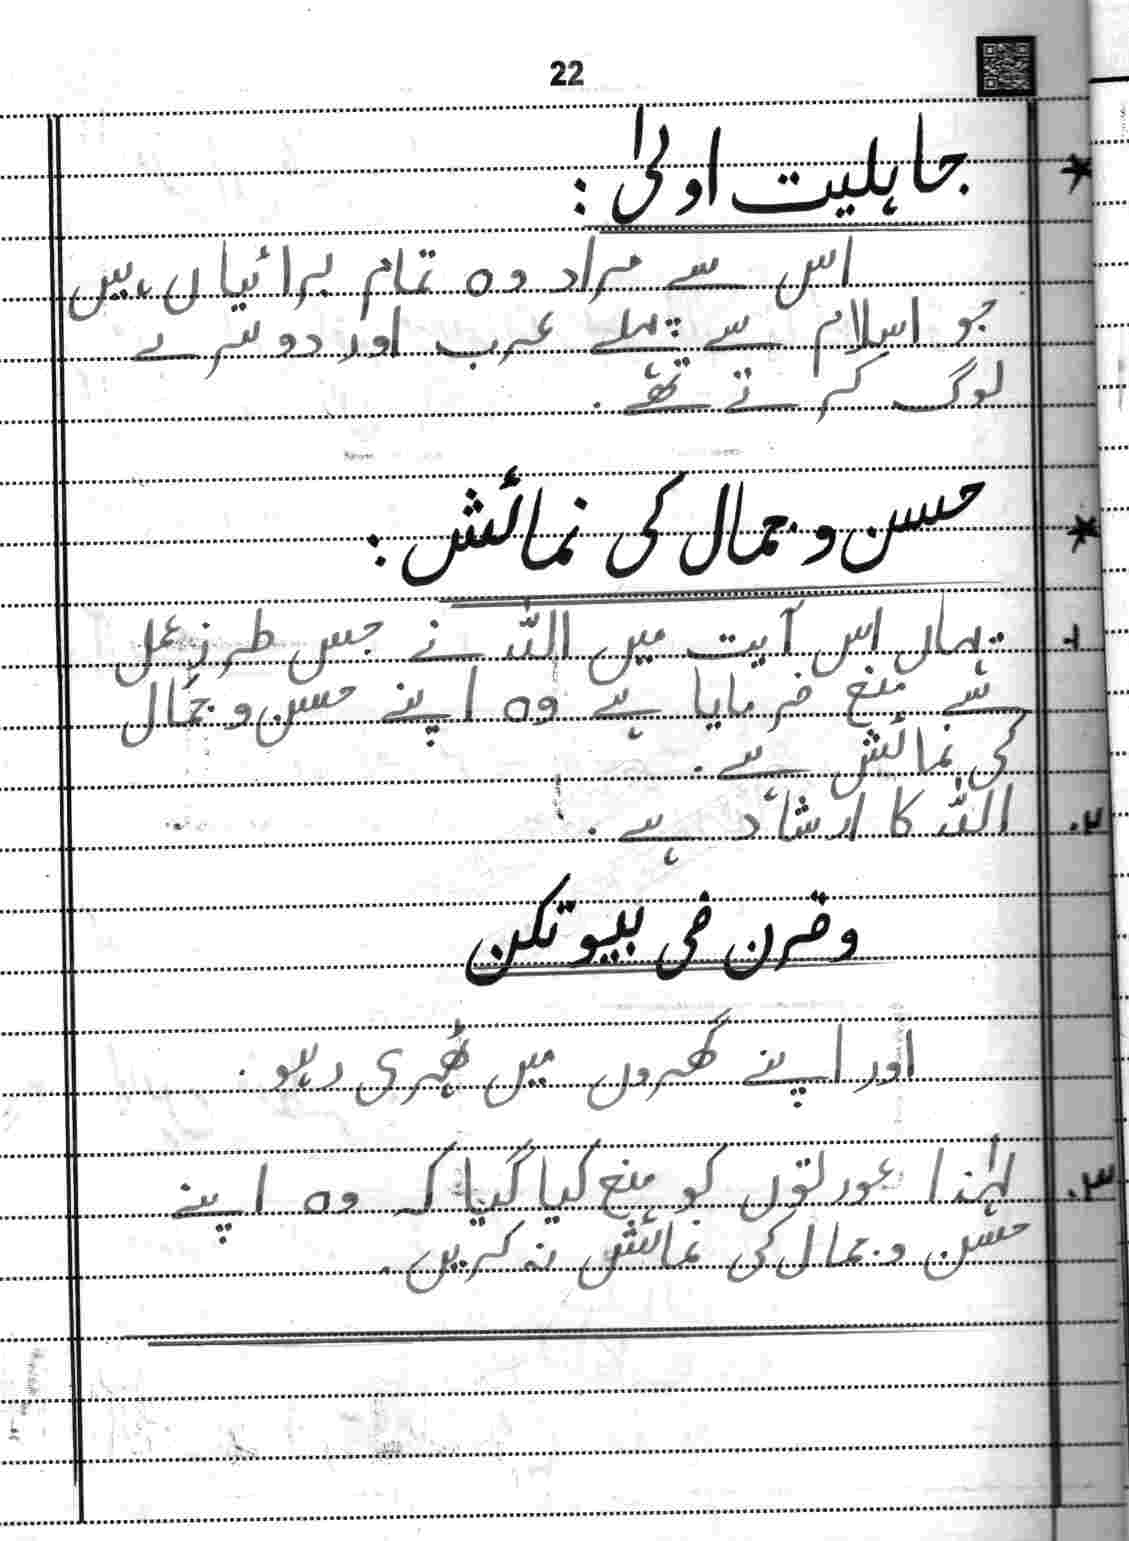 22
* جاہلیت اولیٰ :
اس سے مراد وہ تمام برائیاں ہیں
جو اسلام سے پہلے عرب اور دوسرے
لوگ کرتے تھے .
* حسن و جمال کی نمائش :
۱. یہاں اس آیت میں اللہ نے جس طرز عمل
سے منع فرمایا ہے وہ اپنے حسن و جمال
کی نمائش ہے .
۲. اللہ کا ارشاد ہے .
وقرن فی بیوتکن
اور اپنے گھروں میں ٹھہری رہو .
۳. لہٰذا عورتوں کو منع کیا گیا کہ وہ اپنے
حسن و جمال کی نمائش نہ کریں .